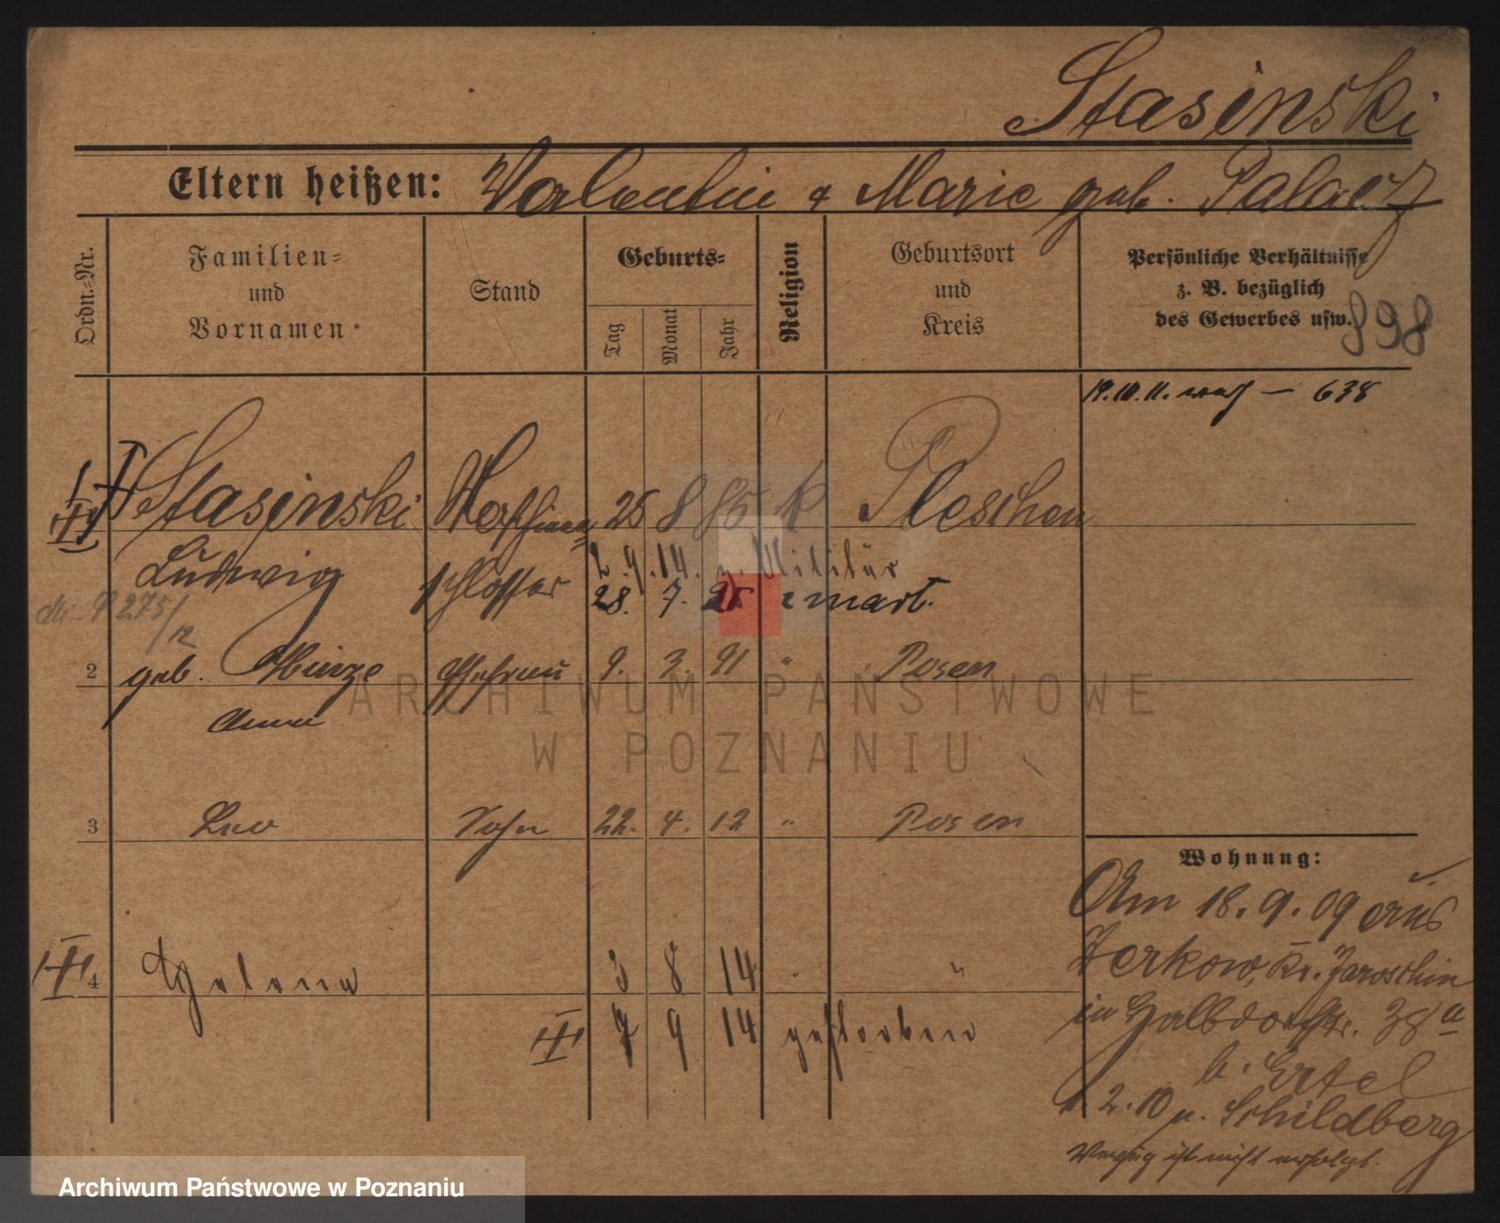 Stasinski
Eltern heißen: Valentin & Marie geb. Palacz
Ordn.-Nr.
Familien-
und
Vornamen
Stand
Geburts-
Tag
Monat
Jahr
Religion
Geburtsort
und
Kreis
Persönliche Verhältnisse
z. B. bezüglich
des Gewerbes usw.
898
19.10.11. – 638
Stasinski 25 8 85 k Pleschen
Ludwig Schlosser 2.9.14. z. Militär
28. 7.
275/12
2 geb. Hinze Ehefrau 9. 3. 91 " Posen
Anna
3 Leo Sohn 22. 4. 12 " Posen
4 Helena 3 8 14 " "
7 9 14 gestorben
Wohnung:
Am 18.9.09 aus
Zerkow, Kr. Jaroschin
in Halbdorfstr. 38a
b. Ertel
1.2.10 n. Schildberg
Verzug ist nicht erfolgt.
ARCHIWUM PAŃSTWOWE
W POZNANIU
Archiwum Państwowe w Poznaniu